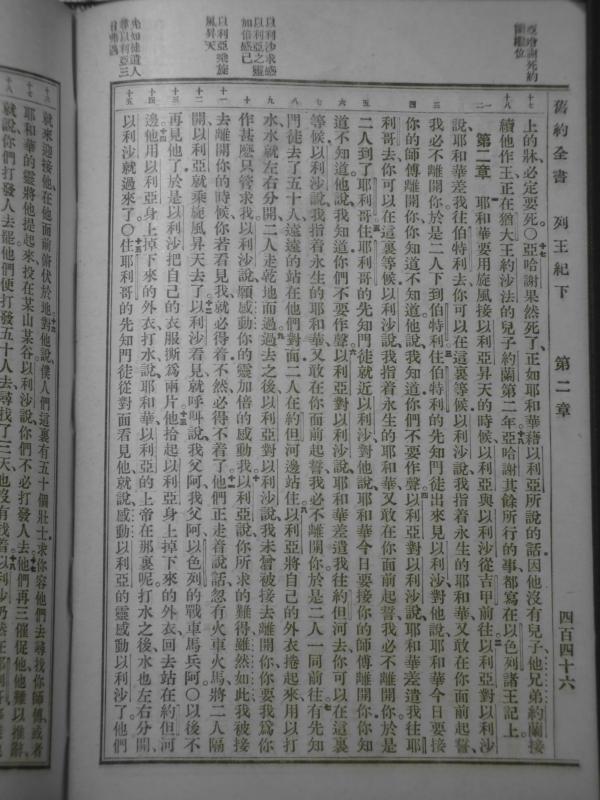 舊約全書 列王紀下 第二章 四百四十六
亞哈謝死約
蘭繼位
以利沙求感
以利亞之靈
加倍感己
以利亞乘旋
風昇天
先知徒遣人
尋以利亞三
日弗遇
十七 上的牀必定要死○亞哈謝果然死了正如耶和華藉以利亞所說的話因他沒有兒子他兄弟約蘭接
十八 續他作王正在猶大王約沙法的兒子約蘭第二年亞哈謝其餘所行的事都寫在以色列諸王記上
一 第二章 耶和華要用旋風接以利亞昇天的時候以利亞與以利沙從吉甲前往以利亞對以利沙
二 說耶和華差我往伯特利去你可以在這裏等候以利沙說我指着永生的耶和華又敢在你面前起誓
三 我必不離開你於是二人下到伯特利住伯特利的先知門徒出來見以利沙對他說耶和華今日要接
四 你的師傅離開你你知道不知道他說我知道你們不要作聲以利亞對以利沙說耶和華差遣我往耶
利哥去你可以在這裏等候以利沙說我指着永生的耶和華又敢在你面前起誓我必不離開你於是
五 二人到了耶利哥住耶利哥的先知門徒就近以利沙對他說耶和華今日要接你的師傅離開你你知
六 道不知道他說我知道你們不要作聲以利亞對以利沙說耶和華差遣我往約但河去你可以在這裏
七 等候以利沙說我指着永生的耶和華又敢在你面前起誓我必不離開你於是二人一同前往有先知
八 門徒去了五十人遠遠的站在他們對面二人在約但河邊站住以利亞將自己的外衣捲起來用以打
九 水水就左右分開二人走乾地而過過去之後以利亞對以利沙說我未曾被接去離開你你要我爲你
十 作甚麽只管求我以利沙說願感動你的靈加倍的感動我以利亞說你所求的難得雖然如此我被接
十一 去離開你的時候你若看見我就必得着不然必得不着了他們正走着說話忽有火車火馬將二人隔
十二 開以利亞就乘旋風昇天去了以利沙看見就呼叫說我父阿我父阿以色列的戰車馬兵阿○以後不
十三 再見他了於是以利沙把自己的衣服撕爲兩片他拾起以利亞身上掉下來的外衣回去站在約但河
十四 邊他用以利亞身上掉下來的外衣打水說耶和華以利亞的上帝在那裏呢打水之後水也左右分開
十五 以利沙就過來了○住耶利哥的先知門徒從對面看見他就說感動以利亞的靈感動以利沙了他們
就來迎接他在他面前俯伏於地對他說僕人們這裏有五十個壯士求你容他們去尋找你師傅或者
耶和華的靈將他提起來投在某山某谷以利沙說你們不必打發人去他們再三催促他他難以推辭
就說你們打發人去罷他們便打發五十人去尋找了三天也沒有找着以利沙仍然在耶利哥